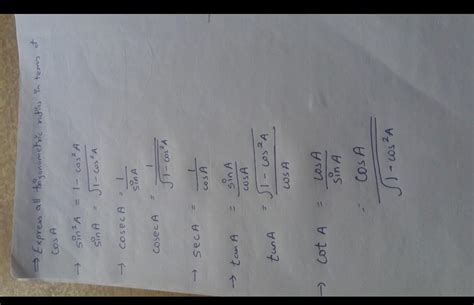 ⇒ Express all trigonometric ratios in terms of
cosA
→ sin²A = 1 - cos²A
sinA = √(1 - cos²A)
→ cosecA = 1/sinA
cosecA = 1/√(1 - cos²A)
→ secA = 1/cosA
→ tanA = sinA/cosA
tanA = √(1 - cos²A)/cosA
→ cotA = cosA/sinA
= cosA/√(1 - cos²A)